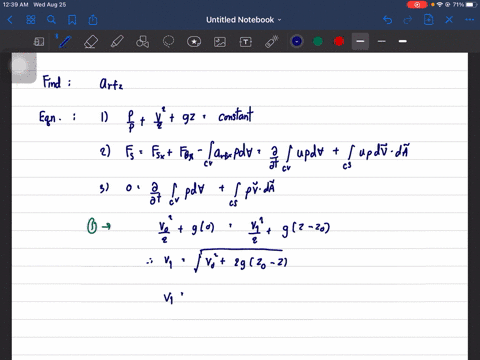 12:39 AM Wed Aug 25
71%
Untitled Notebook
Find : arfz
Eqn. : 1) p/ρ + V²/2 + gz = constant
2) Fs = Fsx + FBx - ∫cv arfx ρd∀ = ∂/∂t ∫cv uρd∀ + ∫cs uρdV⃗·dA⃗
3) 0 = ∂/∂t ∫cv ρd∀ + ∫cs ρV⃗·dA⃗
① → V0²/2 + g(0) = V1²/2 + g(z - z0)
∴ V1 = √(V0² + 2g(z0 - z))
V1 =